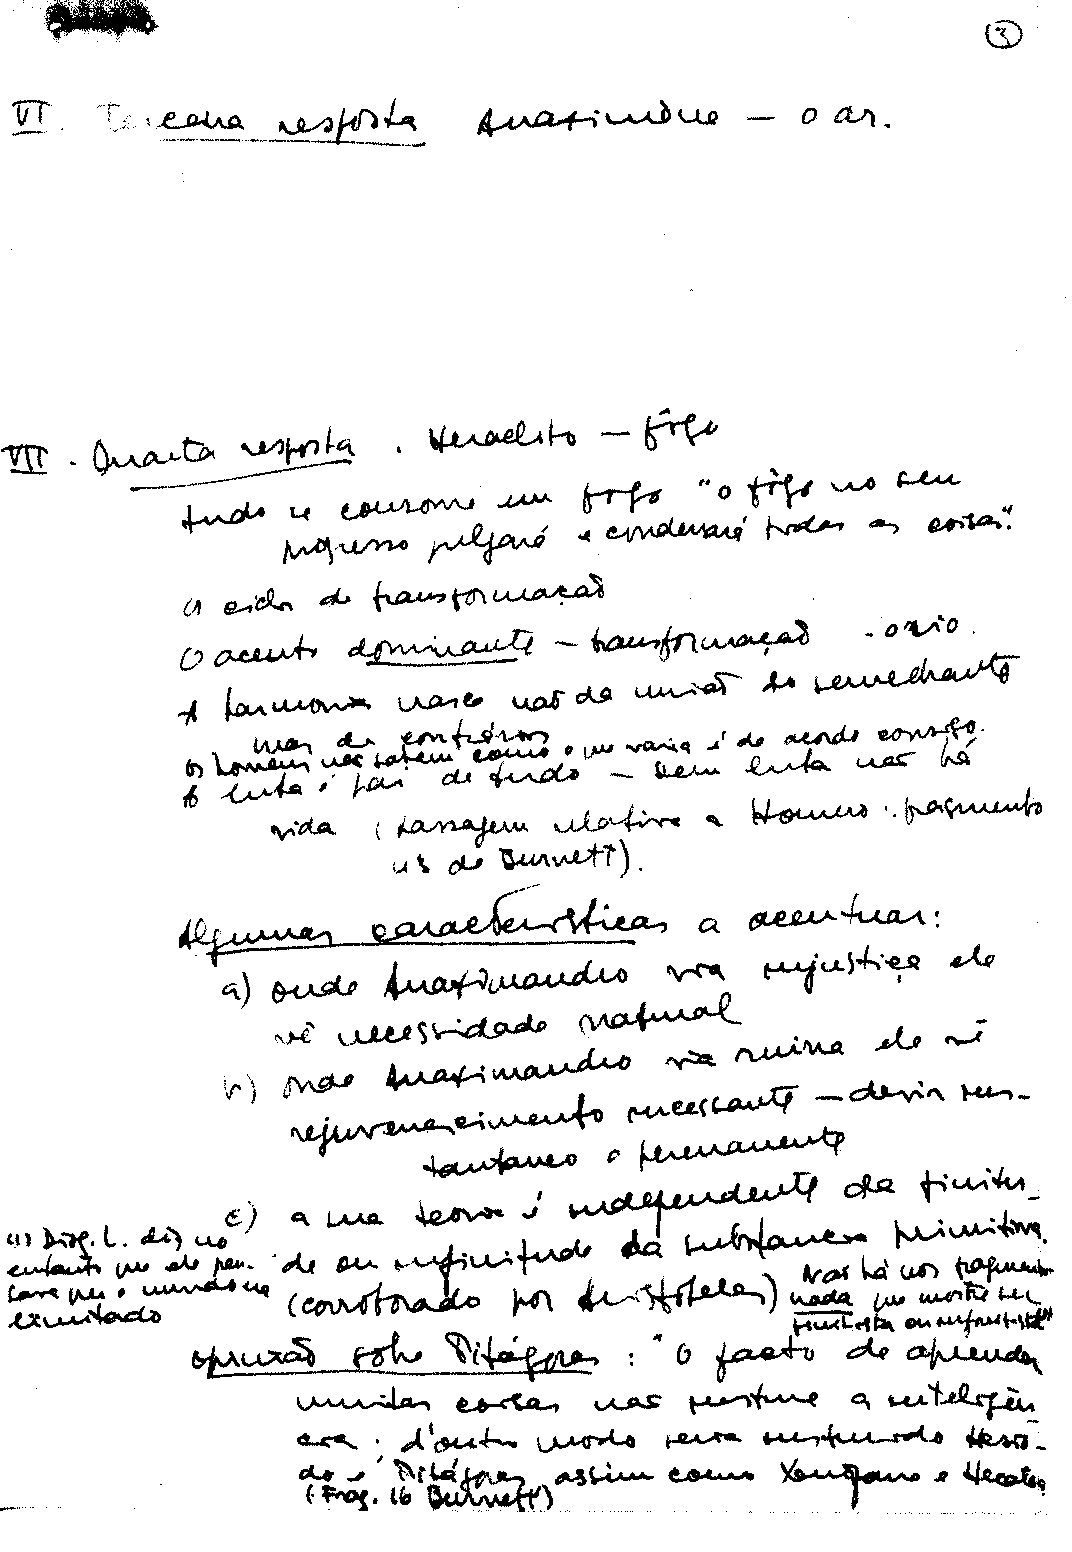 3
VI. Terceira resposta Anaximène — o ar.
VII. Quarta resposta. Heraclito — fôgo
tudo se consome em fôgo "o fôgo no seu
progresso julgará e condenará todas as coisas".
Os ciclos de transformação
O acento dominante — transformação - ozio.
A harmonia nasce não da união do semelhante
mas de contrários
Os homens não sabem como o que varia é de acordo consigo.
A luta é pai de tudo — sem luta não há
vida (passagem relativa a Homero: fragmento
43 de Burnett).
Algumas características a acentuar:
a) onde Anaximandro via injustiça ele
vê necessidade natural
b) onde Anaximandro via ruina ele vê
rejuvenescimento incessante — devir ins-
tantaneo e permanente
c) a sua teoria é independente da finitu-
de ou infinitude da substancia primitiva.
(corroborado por Aristoteles) Não há nos fragmentos
nada que mostre ser
finitista ou infinitista (1)
(1) Diog. L. diz no
entanto que ele pen-
sava que o mundo era
limitado
opinião sobre Pitágoras: "O facto de aprender
muitas coisas não instrue a inteligên
cia; d'outro modo teria instruido Hesió-
do e Pitágoras, assim como Xenofano e Hecateu
(Frag. 16 Burnett)